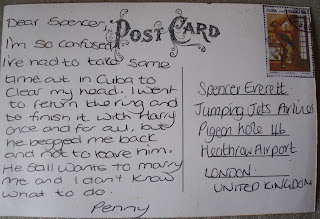 Dear Spencer,
POST CARD
CUBA
I'm so confused
I've had to take some
time out in Cuba to
clear my head. I went
to return the ring and
to finish it with Harry
once and for all, but
he begged me back
and not to leave him.
He still wants to marry
me and I don't know
what to do.
Penny
Spencer Everett
Jumping Jets Airlines
Pigeon hole 146
Heathrow Airport
LONDON.
UNITED KINGDOM